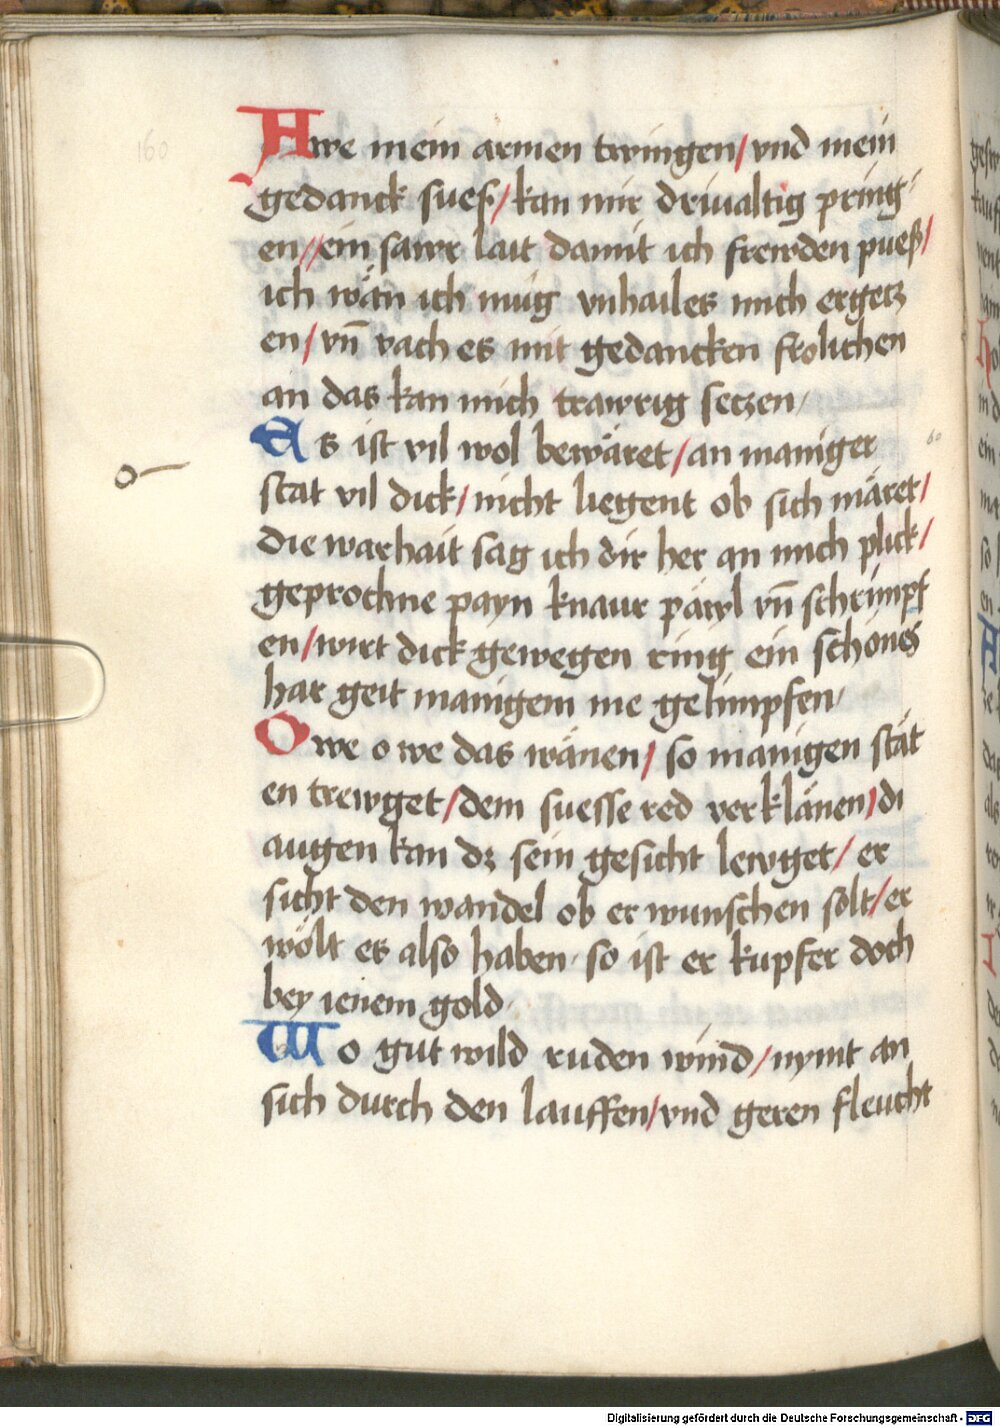 160
Awe mein armen twingen/vnd mein
gedanck sues/kan mir driualtig pring
en//ein sawr lait damit ich frewden pueß/
ich wän ich müg vnhailes mich ergetz
en/vn̄ vach es mit gedancken frolichen
an das kan mich trawrig setzen/
Es ist vil wol bewäret/an maniger
60
stat vil dick/nicht liegent ob sich märet/
die warhait sag ich dir her an mich plick/
geprochne payn knaur päwl vn̄ schrimpf
en/wirt dick gewegen ring ein schönes
har geit manigem me gelimpfen/
Owe owe das wänen/so manigen stät
en trewget/dem suesse red verklänen/di
augen kan dz sein gesicht lewget/er
sicht den wandel ob er wunschen solt/er
wölt es also haben· so ist er kupfer doch
bey ienem gold·
Wo gut wild ruden wind/nymt an
sich durch den lauffen/vnd geren fleucht
Digitalisierung gefördert durch die Deutsche Forschungsgemeinschaft - DFG